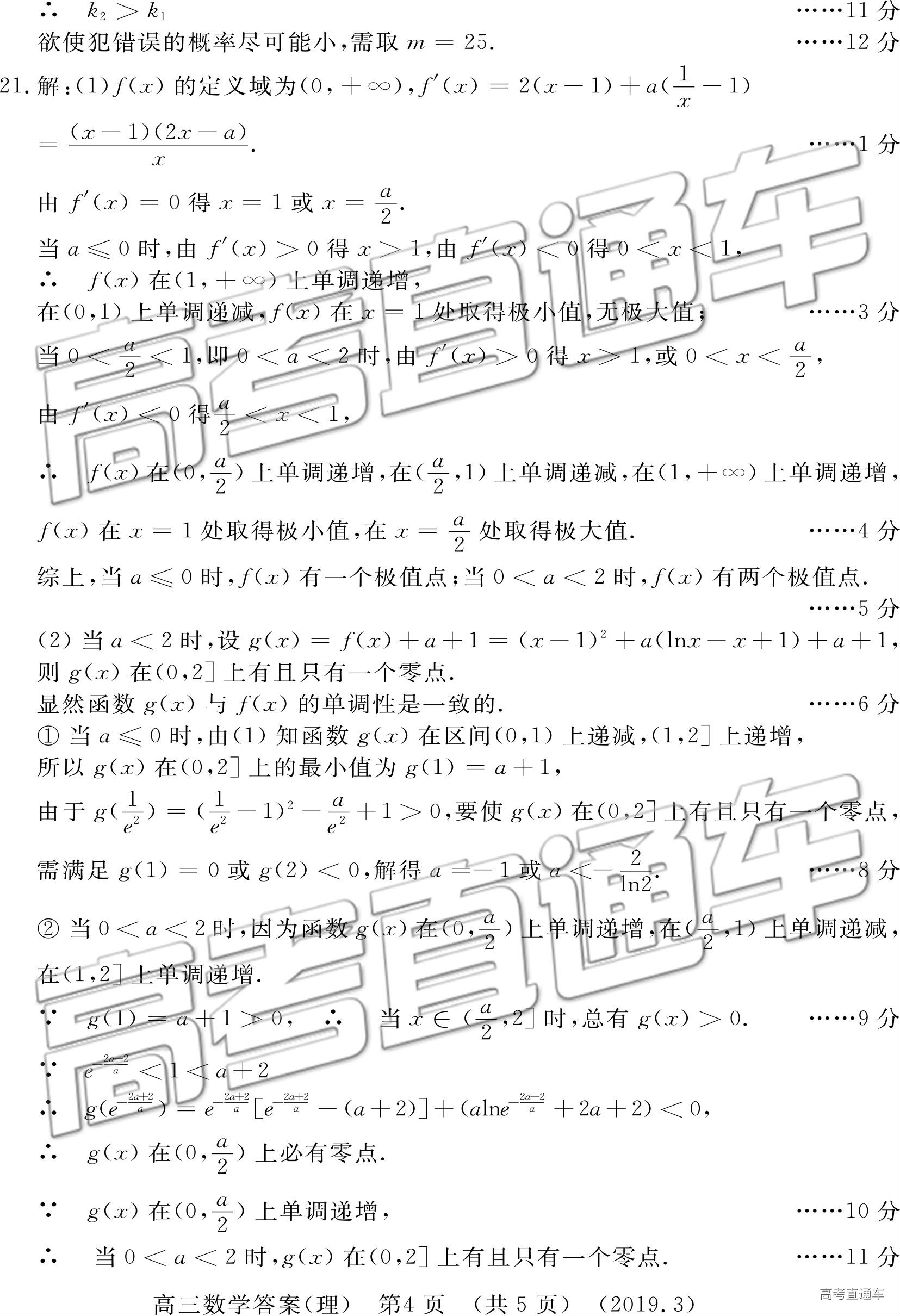 ∴ k₂ > k₁ ……11分
欲使犯错误的概率尽可能小,需取 m = 25. ……12分
21. 解:(1) f(x) 的定义域为(0, +∞), f′(x) = 2(x-1) + a(1/x - 1)
= (x-1)(2x-a)/x. ……1分
由 f′(x) = 0 得 x = 1 或 x = a/2.
当 a ≤ 0 时,由 f′(x) > 0 得 x > 1,由 f′(x) < 0 得 0 < x < 1,
∴ f(x) 在(1, +∞) 上单调递增,
在(0,1) 上单调递减, f(x) 在 x = 1 处取得极小值,无极大值; ……3分
当 0 < a/2 < 1,即 0 < a < 2 时,由 f′(x) > 0 得 x > 1,或 0 < x < a/2,
由 f′(x) < 0 得 a/2 < x < 1,
∴ f(x) 在(0, a/2) 上单调递增,在(a/2, 1) 上单调递减,在(1, +∞) 上单调递增,
f(x) 在 x = 1 处取得极小值,在 x = a/2 处取得极大值. ……4分
综上,当 a ≤ 0 时, f(x) 有一个极值点;当 0 < a < 2 时, f(x) 有两个极值点.
……5分
(2) 当 a < 2 时,设 g(x) = f(x) + a + 1 = (x-1)² + a(lnx - x + 1) + a + 1,
则 g(x) 在(0,2] 上有且只有一个零点.
显然函数 g(x) 与 f(x) 的单调性是一致的. ……6分
① 当 a ≤ 0 时,由(1) 知函数 g(x) 在区间(0,1) 上递减,(1,2] 上递增,
所以 g(x) 在(0,2] 上的最小值为 g(1) = a + 1,
由于 g(1/e²) = (1/e² - 1)² - a/e² + 1 > 0,要使 g(x) 在(0,2] 上有且只有一个零点,
需满足 g(1) = 0 或 g(2) < 0,解得 a = -1 或 a < - 2/ln2. ……8分
② 当 0 < a < 2 时,因为函数 g(x) 在(0, a/2) 上单调递增,在(a/2, 1) 上单调递减,
在(1,2] 上单调递增.
∵ g(1) = a + 1 > 0, ∴ 当 x ∈ (a/2, 2] 时,总有 g(x) > 0. ……9分
∵ e^(-(2a+2)/a) < 1 < a + 2
∴ g(e^(-(2a+2)/a)) = e^(-(2a+2)/a)[e^(-(2a+2)/a) - (a+2)] + (alne^(-(2a+2)/a) + 2a + 2) < 0,
∴ g(x) 在(0, a/2) 上必有零点.
∵ g(x) 在(0, a/2) 上单调递增, ……10分
∴ 当 0 < a < 2 时, g(x) 在(0,2] 上有且只有一个零点. ……11分
高三数学答案(理) 第4页 (共5页) (2019.3)
高考直通车
高考直通车
高考直通车